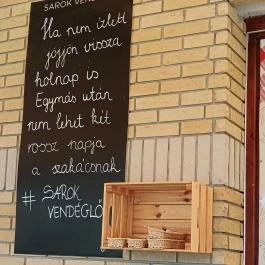 SAROK VENDÉ
Ha nem ízlett
jöjjön vissza
holnap is
Egymás után
nem lehet két
rossz napja
a szakácsnak
# SAROK
VENDÉGLŐ